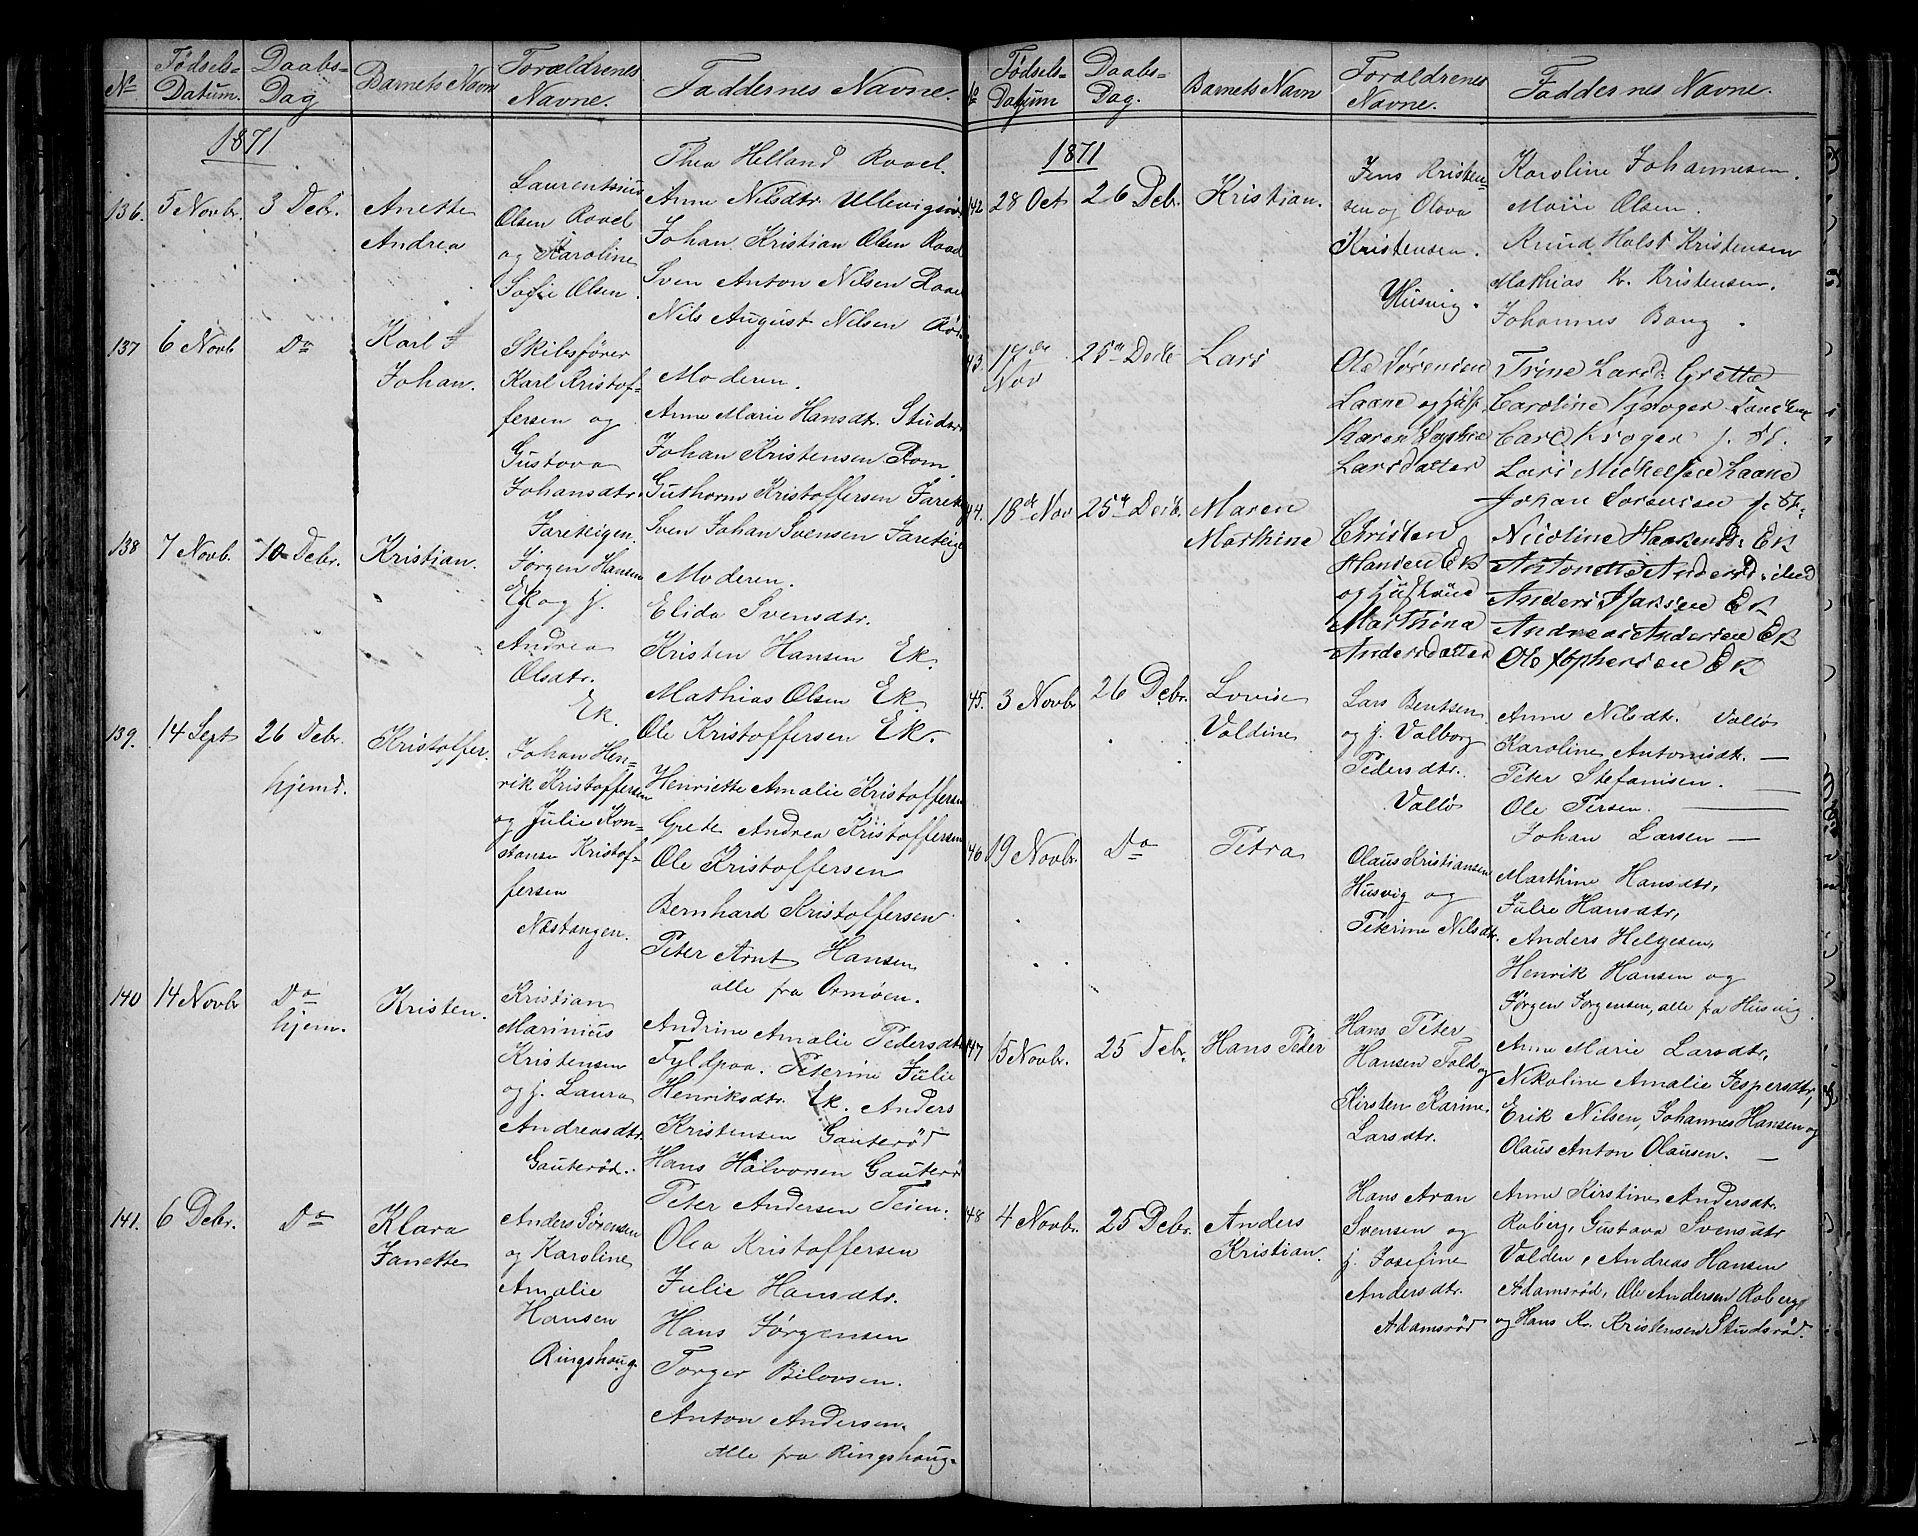 No
Fødsels-
Datum.
Daabs-
Dag
Barnets Navn
Forældrenes
Navne.
Faddernes Navne.
1871
136.
5 Novbr.
3 Debr.
Anette
Andrea
Laurentsius
Olsen Raael
og Karoline
Sofie Olsen.
Thea Helland Raael.
Anne Nilsdtr. Ullevigsø
Johan Kristian Olsen Raael
Sven Anton Nilsen Raael
Nils August Nilsen
137
6 Novb
Do
Karl
Johan.
Skibsfører
Karl Kristof-
fersen og
Gustava
Johansdtr.
Fareteigen.
Moderen.
Anne Marie Hansdtr. Studsrø
Johan Kristensen Rom.
Guthorm Kristoffersen Fareteig
Sven Johan Svensen Fareteige
138
7 Novb.
10 Debr.
Kristian.
Jørgen Hansen
Ek og j.
Andrea
Olsdtr.
Ek.
Moderen.
Elida Svensdtr.
Kristen Hansen Ek.
Mathias Olsen Ek.
Ole Kristoffersen Ek.
139.
14 Sept
26 Debr.
hjemd.
Kristoffer.
Johan Hen-
rik Kristoffersen
og Julie Kon-
stanse Kristof-
fersen
Næstangen.
Henriette Amalie Kristoffersen
Grete Andrea Kristoffersen
Ole Kristoffersen
Bernhard Kristoffersen
Peter Arnt Hansen
alle fra Ormøen.
140
14 Novbr
Do
hjem.
Kristen.
Kristian
Marinius
Kristensen
og j. Laura
Andreasdtr.
Gauterød.
Andrine Amalie Pedersdtr
Fyldpaa. Peterine Julie
Henriksdtr. Ek. Anders
Kristensen Gauterød
Hans Halvorsen Gauterø
Peter Andersen Teien.
141.
6 Debr.
Do
Klara
Janette
Anders Sørensen
og Karoline
Amalie
Hansen
Ringshoug.
Olea Kristoffersen
Julie Hansdtr.
Hans Jørgensen
Torger Bilovsen.
Anton Andersen.
Alle fra Ringshoug.
No
Fødsels-
Datum
Daabs-
Dag.
Barnets Navn
Forældrenes
Navne.
Faddernes Navne.
1871
142
28 Oct
26 Debr.
Kristian.
Jens Kristen-
sen og Olava
Kristensen.
Husvig.
Karoline Johannesen.
Marie Olsen.
Knud Holst Kristensen
Mathias K. Kristensen.
Johannes Bang.
43.
17de
Nov
25de Decbr
Lars
Ole Sørensen
Laane og
Karen Sophie
Larsdatter
Trine Larsd. Grette
Caroline Kroger
Carl Kroger
Lars Mickelsen Laane
Johan Sørensen
44.
18de Nov
25de Decb.
Maren
Mathine
Christen
Hansen Ek
og
Marthina
Andersdatter
Nicoline Haakensd: Ek
Antonette Andersd:
Anders Ek
Andreas Andersen Ek
Ole Ek
45.
3 Novbr
26 Debr.
Lovise
Valdine
Lars Bentsen
og j. Valborg
Pedersdtr.
Vallø
Anne Nilsdtr. Vallø
Karoline Antonisdtr. —
Peter Stefanisen. —
Ole Persen. —
Johan Larsen —
46
19 Novbr.
Do
Petra
Olaus Kristiansen
Husvig og
Pekrine Nilsdtr.
Marthine Hansdtr,
Julie Hansdtr,
Anders Helgesen,
Henrik Hansen og
Jørgen Jørgensen, alle fra Husvig.
47
15 Novbr.
25 Debr.
Hans Peder
Hans Peter
Hansen Fold og
Kirsten Karine
Larsdtr.
Anne Marie Larsdtr,
Nikoline Amalie Jespersdtr,
Erik Nilsen, Johannes Hansen og
Olaus Anton Olausen. —
48
4 Novbr.
25 Debr.
Anders
Kristian.
Hans Aran
Svensen og
j. Josefine
Andersdtr.
Adamsrød
Anne Kirstine Andersdtr.
Roberg, Gustava Svensdtr
Valden, Andreas Hansen
Adamsrød, Ole Andersen Roberg
og Hans Kr. Kristensen Studsrød.